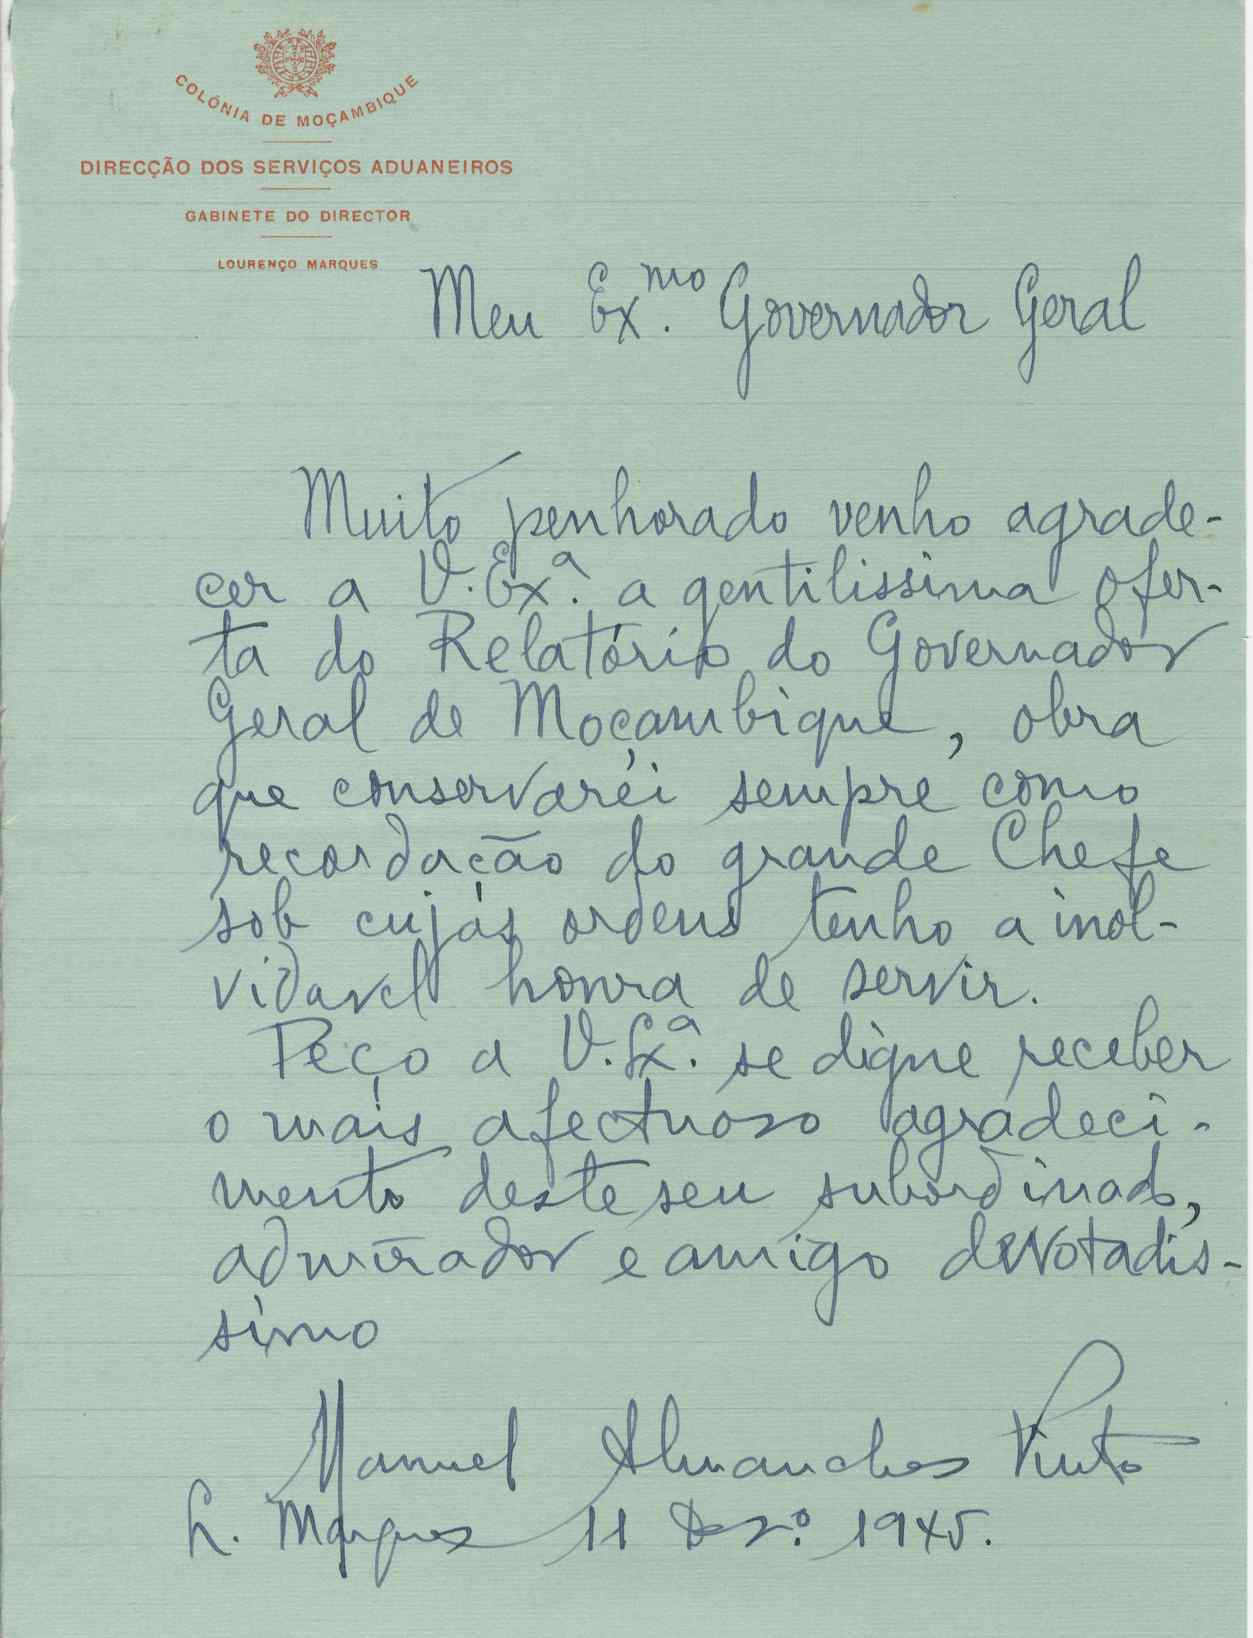 COLÓNIA DE MOÇAMBIQUE
DIRECÇÃO DOS SERVIÇOS ADUANEIROS
GABINETE DO DIRECTOR
LOURENÇO MARQUES
Meu Exmo. Governador Geral
Muito penhorado venho agrade-
cer a V. Exª. a gentilissima ofer-
ta do Relatório do Governador
Geral de Moçambique, obra
que conservaréi sempre como
recordação do grande Chefe
sob cujas ordens tenho a inol-
vidavel honra de servir.
Peço a V. Exª. se digne receber
o mais afectuoso agradeci-
mento deste seu subordinado,
admirador e amigo devotadis-
simo
Manuel Almanchas Pinto
L. Marques 11 Dezº. 1945.